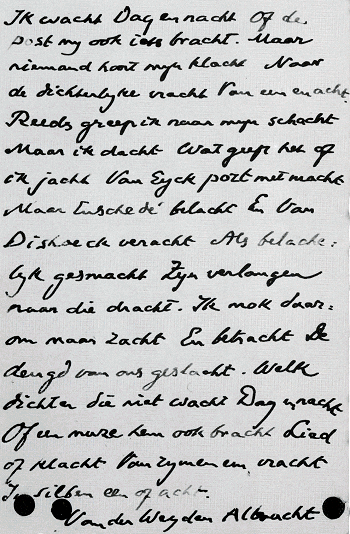 Ik wacht Dag en nacht Of de
post my ook iets bracht. Maar
niemand hoort mijn klacht Naar
de dichterlyke vracht Van een en acht.
Reeds greep ik naar mijn schacht
Maar ik dacht Wat geeft het of
ik jacht Van Eyck port met macht
Maar Enschedé belacht En Van
Dishoeck veracht Als belache=
lyk gesmacht Zyn verlangen
naar die dracht. Ik mok daar=
om maar zacht En betracht De
deugd van ons geslacht. Welk
dichter die niet wacht Dag en nacht
Of een muze hem ook bracht Lied
of klacht Van rymen een vracht
In silben een of acht.
Van der Weyden Albracht